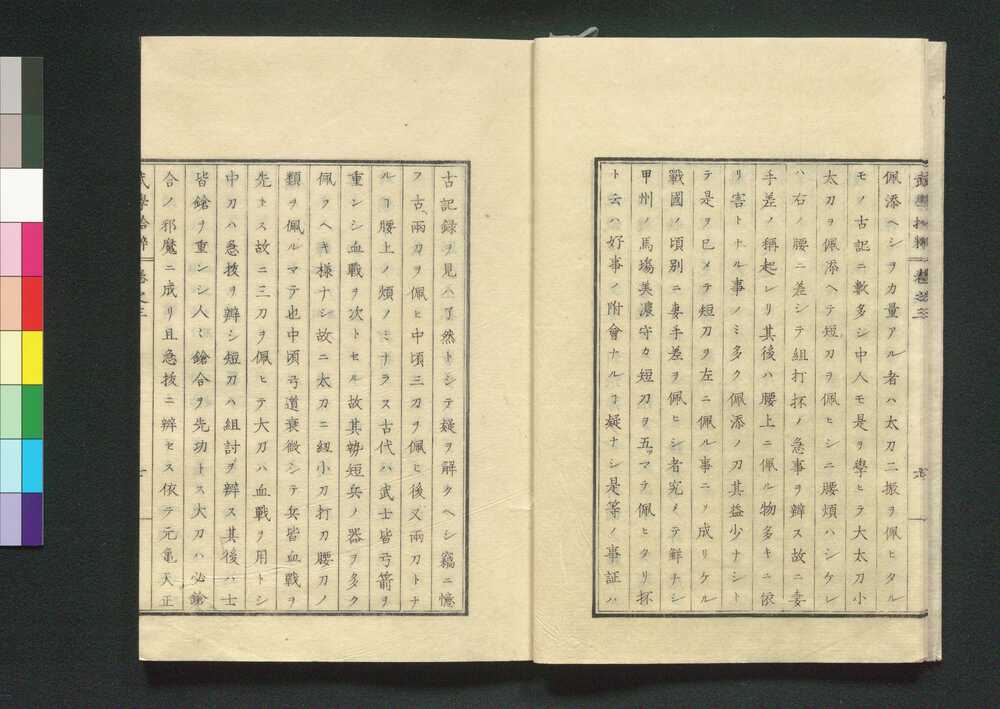 佩添ヘシヲカ量アル者ハ太刀二振ヲ佩ヒタル
モノ古記ニ數多シ中人モ是ヲ學ヒラ大太刀小
太刀ヲ佩添ヘテ短刀ヲ佩ヒシニ腰煩ハシケレ
ハ右ノ腰ニ差シテ組打抔ノ急事ヲ辨ス故ニ妻
手差ノ稱起レリ其後ハ腰上ニ佩ル物多キニ依
リ害トナル事ノミ多ク佩添ノ刀其益少ナシト
テ是ヲ已メテ短刀ヲ左ニ佩ル事ニソ成リケル
戰國ノ頃別ニ妻手差ヲ佩ヒシ者究メテ鮮ナシ
甲州ノ馬塲美濃守カ短刀ヲ五ツマテ佩ヒタリ抔
ト云ハ好事ノ附會ナルヿ疑ナシ是等ノ事証ハ
古記録ヲ見ハ了然トシテ疑ヲ解クヘシ竊ニ憶
フ古、兩刀ヲ佩ヒ中頃三刀ヲ佩ヒ後又兩刀トナ
ルヿ腰上ノ煩ノミナラス古代ハ武士皆弓箭ヲ
重ンシ血戰ヲ次トセル故其㔟短兵ノ器ヲ多ク
佩クヘキ様ナシ故ニ太刀ニ紐小刀打刀腰刀ノ
類ヲ佩ルマテ也中頃弓道衰微シテ兵皆血戰ヲ
先トス故ニ三刀ヲ佩ヒテ大刀ハ血戰ヲ用トシ
中刀ハ急拔ヲ辨シ短刀ハ組討ヲ辨ス其後ハ士
皆鎗ヲ重ンシ人ミ鎗合ヲ先功トス大刀ハ必鎗
合ノ邪魔ニ成リ且急拔ニ辨セス依テ元亀天正